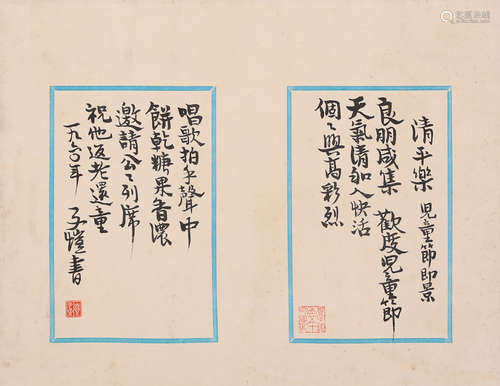 清平樂 兒童節即景
良朋咸集 歡度兒童節
天氣清和人快活
個〻興高彩烈
唱歌拍手聲中
餅乾糖果香濃
邀請公〻列席
祝他返老還童
一九六〇年 子愷書